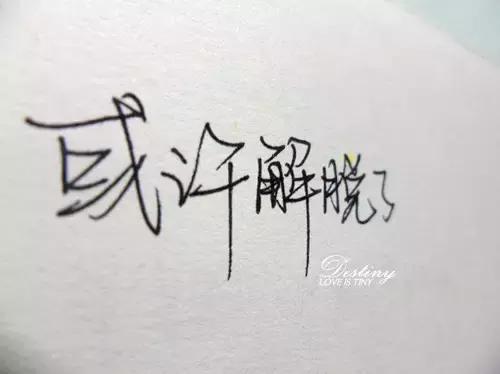 或许解脱了
Destiny
LOVE IS TINY